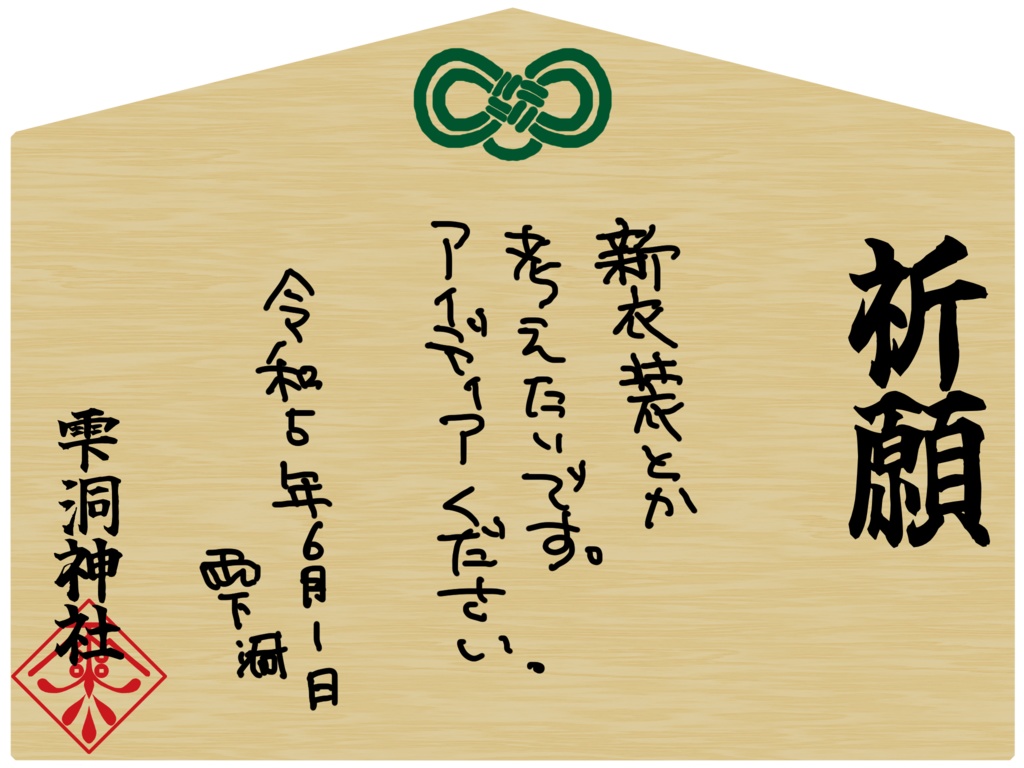 祈願
新衣装とか
考えたいです。
アイディアください。
令和5年6月1日
雫洞
雫洞神社